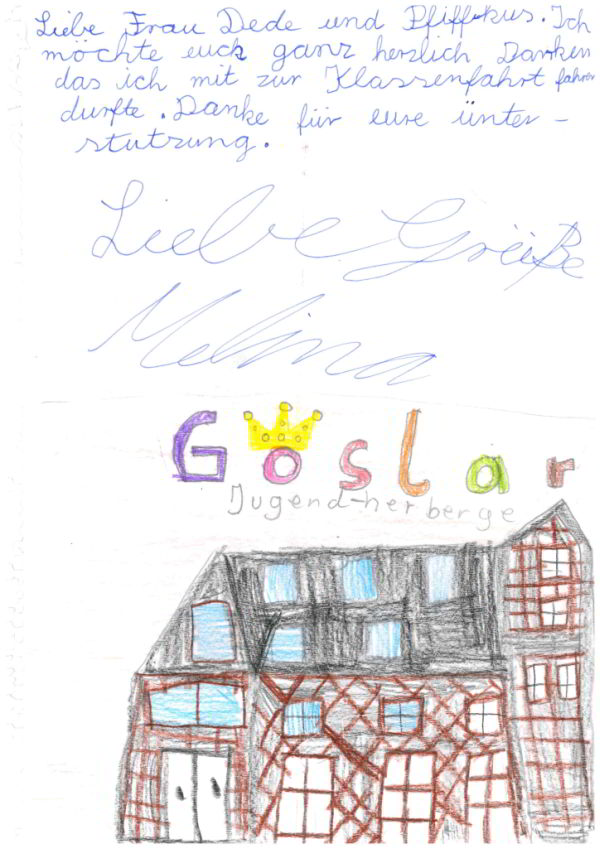 Liebe Frau Dede und Pfiffikus. Ich
möchte euch ganz herzlich Danken
das ich mit zur Klassenfahrt fahren
durfte. Danke für eure ünter-
stutzung.
Liebe Grüße
Melina
Goslar
Jugend-herberge